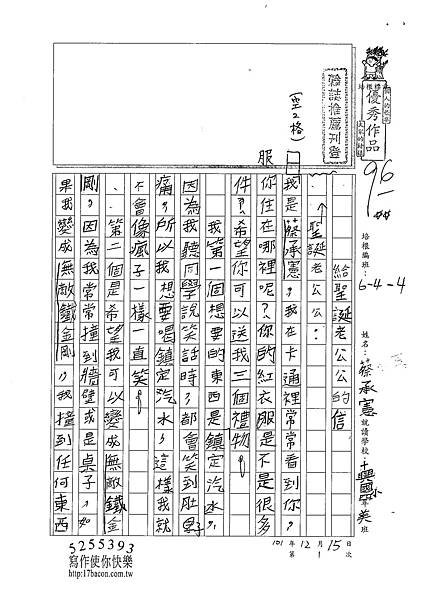 優秀作品
96
培根編班：6-4-4
姓名：蔡承憲
就讀學校：興國小
年美班
101年
第12
1
15日
次
給聖誕老公公的信
聖誕老公公：
我是蔡承憲，我在卡通裡常常看到你？
你住在哪裡呢？你的紅衣服是不是很多
服
件？希望你可以送我三個禮物。
我第一個想要的東西是鎮定汽水，
因為我聽同學說笑話時，都會笑到肚子
痛，所以我想要喝鎮定汽水，這樣我就
不會像瘋子一樣一直笑。
第二個是希望我可以變成無敵鐵金
剛，因為我常常撞到牆壁或是桌子，如
果我變成無敵鐵金剛，我撞到任何東西
(空2格)
雜誌推薦刊登
5255393
寫作使你快樂
http://17bacon.com.tw